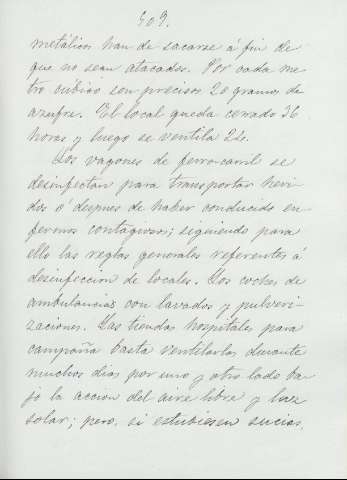 509.
metálicos han de sacarse á fin de
que no sean atacados. Por cada me
tro cúbico son precisos 20 gramos de
azufre. El local queda cerrado 36
horas y luego se ventila 24.
Los vagones de ferro-carril se
desinfectan para transportar heri-
dos ó despues de haber conducido en
fermos contagiosos; siguiendo para
ello las reglas generales referentes á
desinfeccion de locales. Los coches de
ambulancias con lavados y pulveri-
zaciones. Las tiendas hospitales para
campaña basta ventilarlas durante
muchos dias por uno y otro lado ba-
jo la accion del aire libre y luz
solar; pero, si estubiesen sucias,